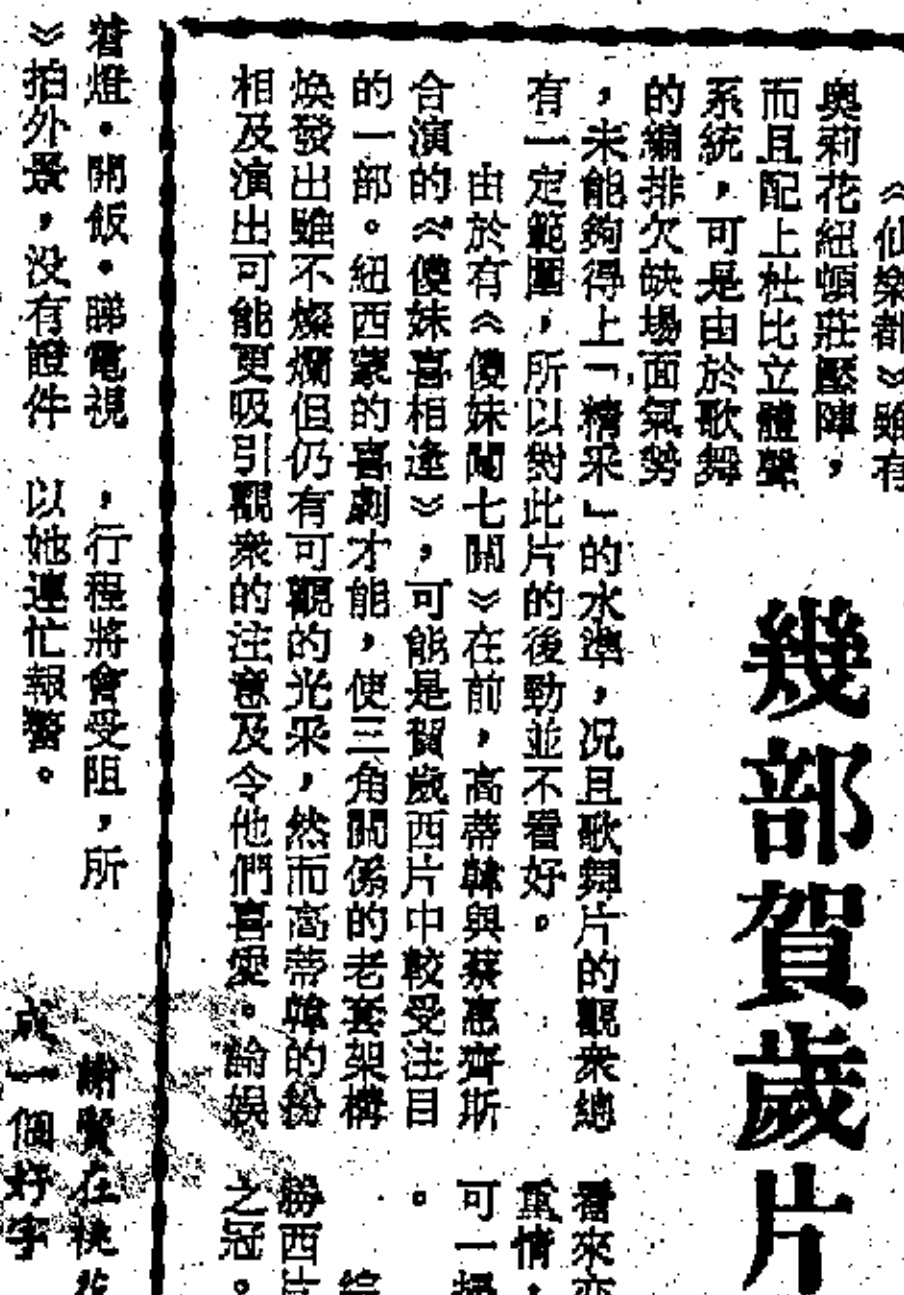 幾部賀歲片
《仙樂都》雖有
奧莉花紐頓莊壓陣，
而且配上杜比立體聲
系統，可是由於歌舞
的編排欠缺場面氣勢
，未能夠得上「精采」的水準，況且歌舞片的觀衆總
有一定範圍，所以對此片的後勁並不看好。
由於有《傻妹闖七關》在前，高蒂韓與蔡惠齊斯
合演的《傻妹喜相逢》，可能是賀歲西片中較受注目
的一部。紐西蒙的喜劇才能，使三角關係的老套架構
煥發出雖不燦爛但仍有可觀的光采，然而高蒂韓的扮
相及演出可能更吸引觀衆的注意及令他們喜愛。論娛
看來亦
重情，
可一
。
綜
勝西片
之冠。
着燈．開飯．睇電視
》拍外景，没有證件
，行程將會受阻，所
以她連忙報警。
謝賢在
成一個好